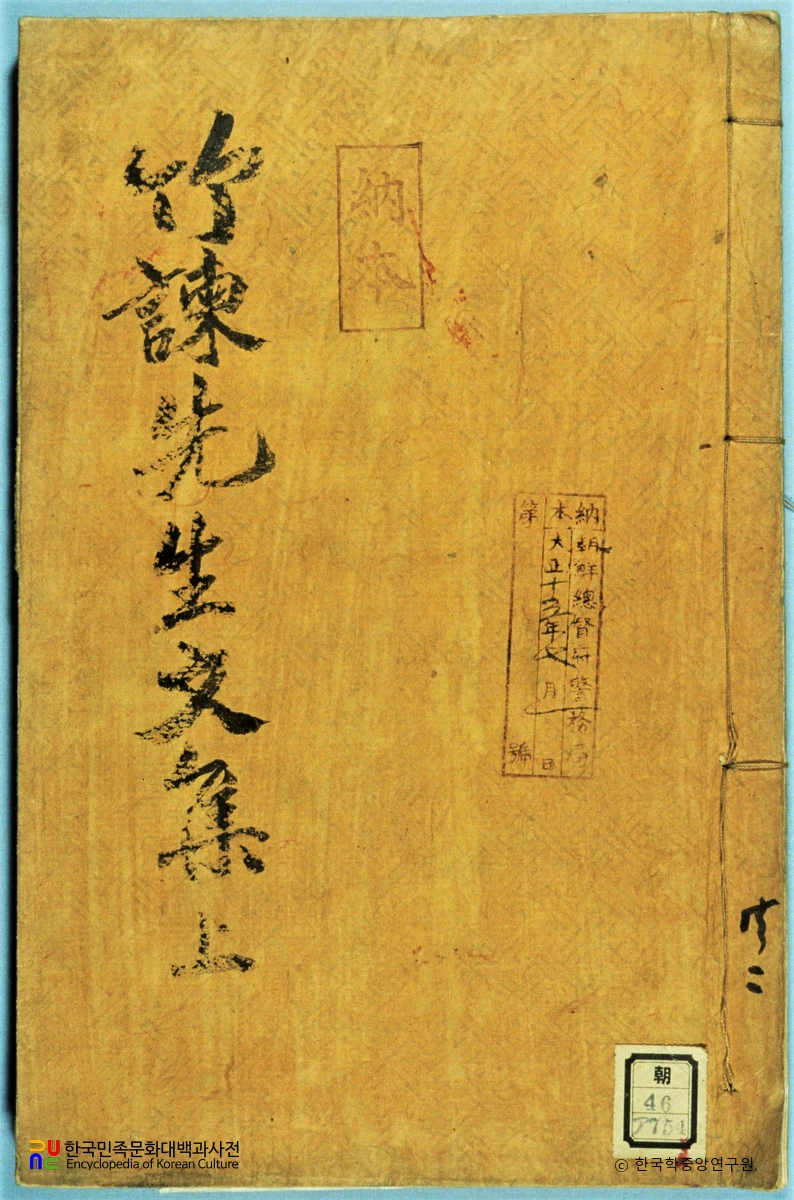 竹諫先生文集上
納本
納本第
朝鮮總督府警務局
大正十五年七月 日
號
共二
朝
46
한국민족문화대백과사전
Encyclopedia of Korean Culture
© 한국학중앙연구원